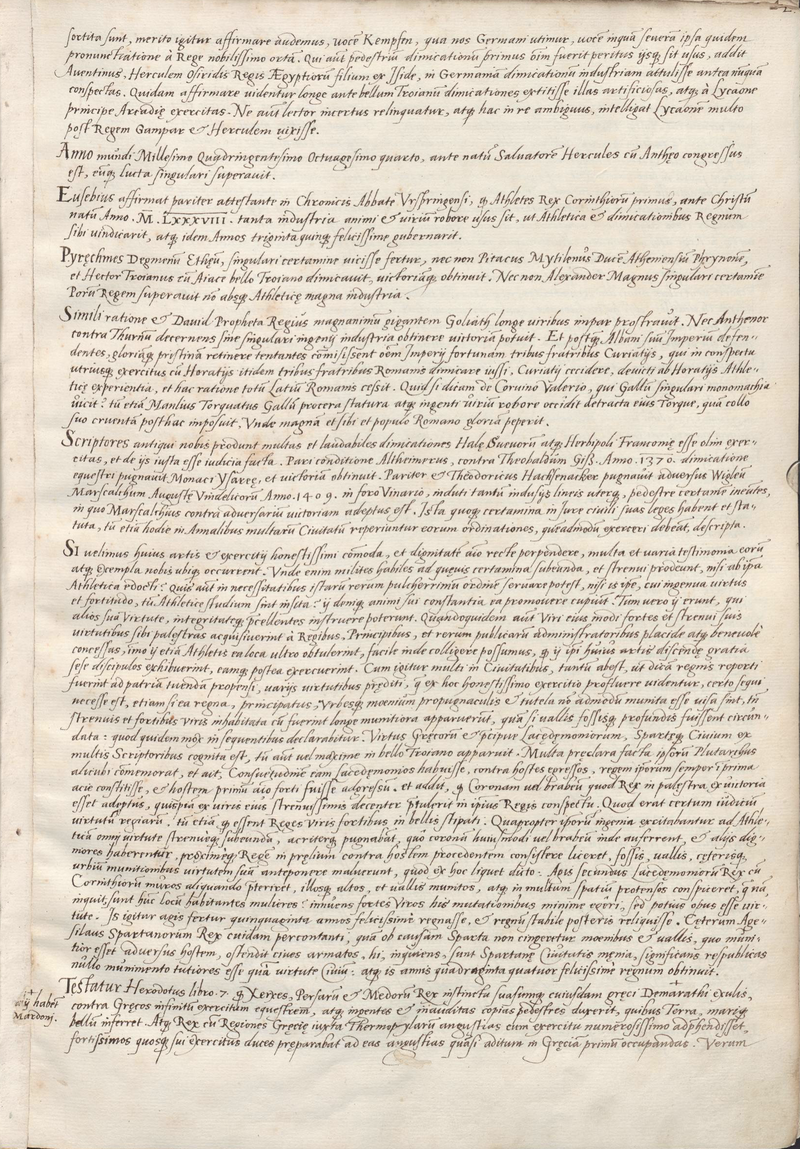 sortita sunt, merito igitur affirmare audemus, vocē Kempfen, qua nos Germani utimur, vocē inquā severa ipsa quidem
pronunctiatione à Rege nobilissimo ortā. Qui aūt pedestriū dimicationū primus oīm fuerit peritus ijsq; sit usus, addit
Aventinus, Herculem Osiridis Regis Ægyptiorū filium ex Iside, in Germaniā dimicationū industriam attulisse antea nūquā
conspectas. Quidam affirmare videntur longe ante bellum Troianū dimicationes extitisse illas artificiosas, atq; à Lycaone
principe Arcadię exercitas. Ne aūt lector incertus relinquatur, atq; hac in re ambiguus, intelligat Lycaonē multo
post Regem Gampar & Herculem vixisse.
Anno mundi Millesimo Quadringentesimo Octuagesimo quarto, ante natū Salvatorē Hercules cū Anthęo congressus
est, eūq; lucta singulari superavit.
Eusebius affirmat pariter attestante in Chronicis Abbate Urspringensi, q; Athletes Rex Corinthiorū primus, ante Christū
natū Anno. M. LXXXVIII. tanta industria animi & viriū robore usus sit, ut Athletica & dimicationibus Regnum
sibi vindicarit, atq; idem Annos triginta quinq; felicissime gubernarit.
Pyręchmes Degmenū Etheū, singulari certamine vicisse fertur, nec non Pitacus Mytilenus Ducē Atheniensiū Phrynonē,
et Hector Troianus cū Aiace bello Troiano dimicavit, victoriāq; obtinuit. Nec non Alexander Magnus singulari certamine
Porū Regem superavit nō absq; Athleticę magna industria.
Simili ratione & David Propheta Regius magnanimū gigantem Goliath longe viribus impar prostravit. Nec Anthenor
contra Thurnū decernens sine singulari ingenij industria obtinere victoriā potuit. Et postq; Albani suū Imperiū defen-
dentes, gloriāq; pristinā retinere tentantes cōmisissent oēm Imperij fortunam tribus fratribus Curiatijs, qui in conspectu
utriusq; exercitus cū Horatijs itidem tribus fratribus Romanis dimicare iussi, Curiatij cecidere, devicti ab Horatijs Athle-
ticę experientia, et hac ratione totū Latiū Romanis cessit. Quid si dicam de Corvino Valerio, qui Gallū singulari monomachia
vicit? tū etiā Manlius Torquatus Gallū procera statura atq; ingenti viriū robore occidit detracta eius Torque, quā collo
suo cruentā posthac imposuit. Unde magnā et sibi et populo Romano gloriā peperit.
Scriptores antiqui nobis produnt multas et laudabiles dimicationes Halę Suevorū atq; Herbipoli Franconię esse olim exer-
citas, et de ijs iusta esse iudicia facta. Pari conditione Altheimerus, contra Theobaldum Giß. Anno. 1370. dimicatione
equestri pugnavit Monaci Ysarę, et victoriā obtinuit. Pariter & Theodoricus Hachsenacker pugnavit adversus Wigleū
Marscalchum Augustę Vindelicorū Anno. 1409. in foro Vinario, induti tantū indusijs lineis uterq;, pedestre certamē ineuntes,
in quo Marscalchus contra adversariū victoriam adeptus est. Ista quoq; certamina in iure civili suas leges habent et sta-
tuta, tū etiā hodie in Annalibus multarū Civitatū reperiuntur eorum ordinationes, queādmodū exerceri debeāt, descripta.
Si velimus huius artis & exercitij honestissimi cōmoda, et dignitatē aīo recte perpendere, multa et varia testimonia eorū
atq; exempla nobis ubiq; occurrent. Unde enim milites habiles ad quevis certamina subeunda, et strenui prodeunt, nisi ab ipā
Athletica edocti? Quis aūt in necessitatibus istarū rerum pulcherrimū ordinē servare potest, nisi is ipē, cui ingenua virtus
et fortitudo, tū Athleticę studium sint insita? ij deniq; animi sui constantia ea promovere cupiūt. Tum vero ij erunt, qui
alios sua virtute, integritateq; pcellentes instruere poterunt. Quandoquidem aūt Viri eius modi fortes et strenui suis
virtutibus sibi palestras acquisiverint à Regibus, Principibus, et rerum publicarū administratoribus placide atq; benevolē
concessas, imo ij etiā Athletis ea loca ultro obtulerint, facile inde colligere possumus, q; ij ipi huius artis discēdę gratia
sese discipulos exhibuerint, eamq; postea exercuerint. Cum igitur multi in Civitatibus, tantū abest, ut dicā regnis reperti
fuerint ad patriā tuendā propensi, varijs virtutibus pręditi, q ex hoc honestissimo exercitio profluere videntur, certo sequi
necesse est, etiam si ea regna, principatus, Urbesq; moenium propugnaculis & tutela nō admodū munita esse visa sint, tn
strenuis et fortibus viris inhabitata cū fuerint longe munitiora apparuerūt, quā si vallis fossisq; profundis fuissent circun-
data: quod quidem mox in sequentibus declarabitur. Virtus Gręcorū & pcipue Lacedęmoniorum, Spartęq; Civium ex
multis Scriptoribus cognita est, tū aūt vel maxime in bello Troiano apparuit. Multa pręclara facta ipsorū Plutarchus
alicubi cōmemorat, et ait, Consuetudinē eam Lacedęmonios habuisse, contra hostes egressos, regem ipsorum semper i prima
acie constitisse, & hostem primū aīo forti fuisse adgressū. et addit, q; Coronam vel brabeū quod Rex in palestra ex victoria
esset adeptus, quispiā ex viris eius strenuissimis decenter ptulerit in ipius Regis conspectu. Quod erat certum indiciū
virtutū regiarū, tū etiā q; essent Reges viris fortibus in bellis stipati. Quapropter ipsorū ingenia excitabantur ad Athle-
tica omni virtute strenueq; subeunda, acriterq; pugnabāt, quo coronā huiusmodi vel brabeū inde auferrent, & alijs dig-
niores haberentur, proximeq; Rege in prelium contra hostem procedentem consistere liceret, fossis, vallis, cęterisq;
urbiū munitionibus virtutem suā anteponere maluerunt, quod ex hoc liquet dicto. Agis secundus Lacedęmoniorū Rex cū
Corinthiorū muros aliquando pteriret, illosq; altos, et vallis munitos, atq; in multum spatiū protensos conspiceret, q nā
inquit, sunt huc locū habitantes mulieres? innuens fortes viros his mutationibus minime egeri, sed potius opus esse vir-
tute. Is igitur agis fertur quinquaginta annos felicissime regnasse, & regnū stabile posteris reliquisse. Cęterum Age-
silaus Spartanorum Rex cuidam percontanti, quā ob causam Sparta non cingeretur moenibus & vallis, quo muni-
tior esset adversus hostem, ostendit cives armatos, hi, inquiens, sunt Spartanę Civitatis męnia, significans respublicas
nullo munimento tutiores esse quā virtute Civiū: atq; is annis quadraginta quatuor felicissime regnum obtinuit.
Testatur Herodotus libro. 7. q; Xerxes, Persarū & Medorū Rex instinctu suasuq; cuiusdam gręci Demarathi exulis,
aīj habēt
Mardonj.
contra Gręcos infinitū exercitum equestrem, atq; ingentes & inauditas copias pedestres duxerit, quibus Terra, mariq;
bellū inferret. Atq; Rex cū Regiones Gręcię iuxta Thermopylarū angustias cum exercitu numerosissimo adphendisset,
fortissimos quosq; sui exercitus duces pręparabat ad eas angustias quasi aditum in Gręciā primū occupandas. Verum